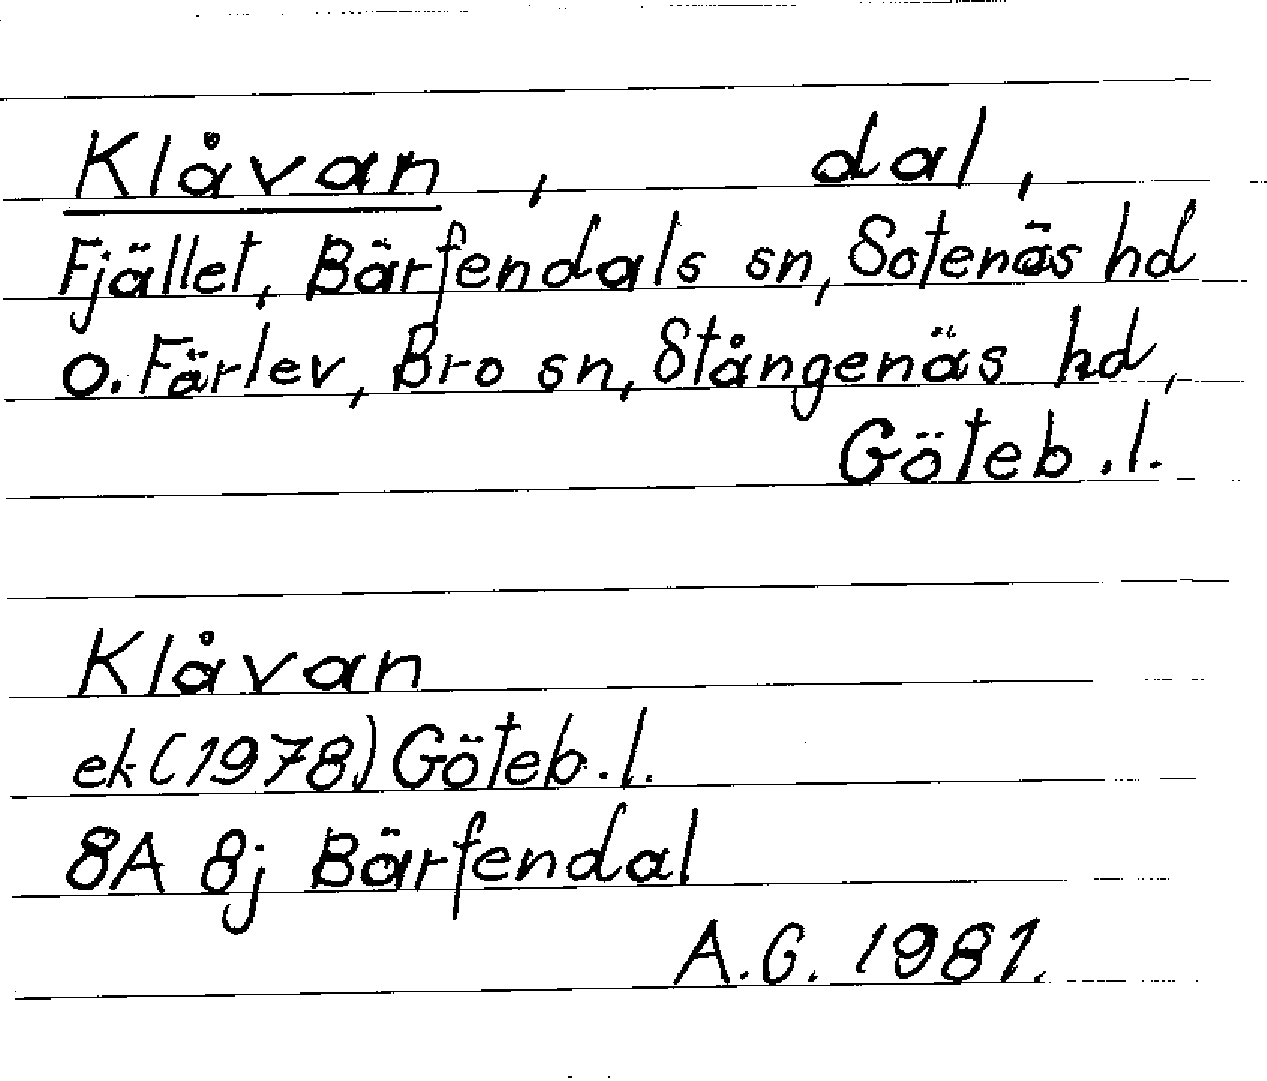 Klåvan, dal,
Fjället, Bärfendals sn, Sotenäs hd
o. Färlev, Bro sn, Stångenäs hd,
Göteb.l.
Klåvan
ek (1978) Göteb.l.
8A 8j Bärfendal
A.G. 1981.